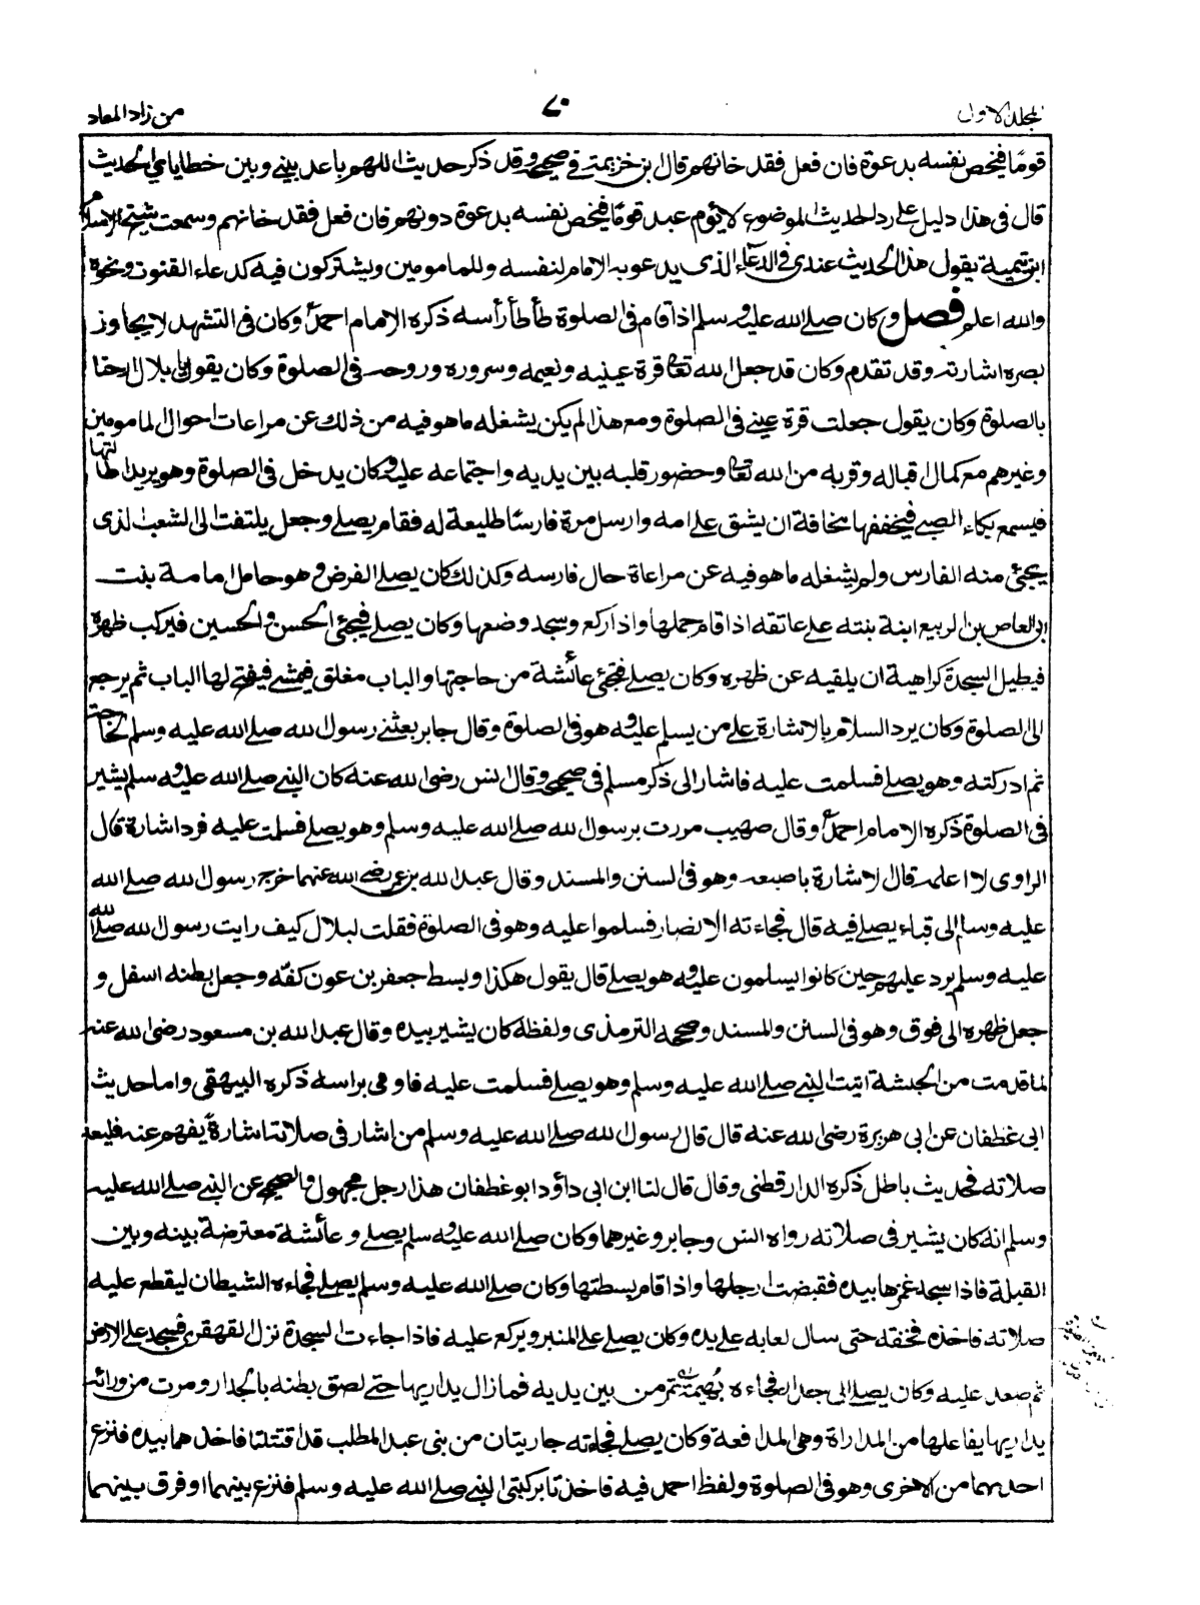 المجلد الاول
٧٠
من زاد المعاد
قوما فيخص نفسه بدعوة فان فعل فقد خانهم قال ابن خزيمة في صحيحه وقد ذكر حديث اللهم باعد بيني وبين خطاياي الحديث
قال في هذا دليل على رد الحديث الموضوع لا يؤم عبد قوما فيخص نفسه بدعوة دونهم فان فعل فقد خانهم وسمعت شيخ الاسلام
ابن تيمية يقول هذا الحديث عندي في الدعاء الذي يدعو به الامام لنفسه وللمامومين ويشتركون فيه كدعاء القنوت ونحوه
والله اعلم فصل وكان صلى الله عليه وسلم اذا قام في الصلوة طأطأ رأسه ذكره الامام احمد وكان في التشهد لا يجاوز
بصره اشارته وقد تقدم وكان قد جعل الله تعالى قرة عينيه ونعيمه وسروره وروحه في الصلوة وكان يقول يا بلال ارحنا
بالصلوة وكان يقول جعلت قرة عيني في الصلوة ومع هذا لم يكن يشغله ما هو فيه من ذلك عن مراعات احوال المامومين
وغيرهم مع كمال اقباله وقربه من الله تعالى وحضور قلبه بين يديه واجتماعه عليه وكان يدخل في الصلوة وهو يريد اطالتها
فيسمع بكاء الصبي فيخففها مخافة ان يشق على امه وارسل مرة فارسا طليعة له فقام يصلي وجعل يلتفت الى الشعب الذى
يجئ منه الفارس ولم يشغله ما هو فيه عن مراعاة حال فارسه وكذلك كان يصلي الفرض وهو حامل امامة بنت
ابي العاص بن الربيع ابنة بنته على عاتقه اذا قام حملها واذا ركع وسجد وضعها وكان يصلي فيجئ الحسن والحسين فيركب ظهره
فيطيل السجدة كراهية ان يلقيه عن ظهره وكان يصلي فتجئ عائشة من حاجتها والباب مغلق فيمشي فيفتح لها الباب ثم يرجع
الى الصلوة وكان يرد السلام بالاشارة على من يسلم عليه وهو في الصلوة وقال جابر بعثني رسول الله صلى الله عليه وسلم لحاجة
ثم ادركته وهو يصلي فسلمت عليه فاشار الى ذكر مسلم في صحيحه وقال انس رضى الله عنه كان النبي صلى الله عليه وسلم يشير
في الصلوة ذكره الامام احمد وقال صهيب مررت برسول الله صلى الله عليه وسلم وهو يصلي فسلمت عليه فرد اشارة قال
الراوى لا اعلمه قال لا اشارة باصبعه وهو في السنن والمسند وقال عبد الله بن عمر رضى الله عنهما خرج رسول الله صلى الله
عليه وسلم الى قباء يصلي فيه قال فجاءته الانصار فسلموا عليه وهو في الصلوة فقلت لبلال كيف رايت رسول الله صلى الله
عليه وسلم يرد عليهم حين كانوا يسلمون عليه وهو يصلي قال يقول هكذا وبسط جعفر بن عون كفه وجعل بطنه اسفل و
جعل ظهره الى فوق وهو في السنن والمسند وصححه الترمذى ولفظه كان يشير بيده وقال عبد الله بن مسعود رضى الله عنه
لما قدمت من الحبشة اتيت النبي صلى الله عليه وسلم وهو يصلي فسلمت عليه فاومى براسه ذكره البيهقى واما حديث
ابى غطفان عن ابى هريرة رضى الله عنه قال قال رسول الله صلى الله عليه وسلم من اشار في صلاته اشارة يفهم عنه فليعد
صلاته فحديث باطل ذكره الدارقطنى وقال قال لنا ابن ابى داؤد ابو غطفان هذا رجل مجهول والصحيح عن النبي صلى الله عليه
وسلم انه كان يشير في صلاته رواه انس وجابر وغيرهما وكان صلى الله عليه وسلم يصلي وعائشة معترضة بينه وبين
القبلة فاذا سجد غمزها بيده فقبضت رجلها واذا قام بسطتها وكان صلى الله عليه وسلم يصلي فجاءه الشيطان ليقطع عليه
صلاته فاخذه فخنقه حتى سال لعابه على يده وكان يصلي على المنبر ويركع عليه فاذا جاءت السجدة نزل القهقرى فسجد على الارض
ثم صعد عليه وكان يصلي الى جدار فجاءه بهيمة تمر من بين يديه فما زال يداريها حتى لصق بطنه بالجدار ومرت من ورائه
يداريها يفاعلها من المداراة وهى المدافعة وكان يصلي فجاءته جاريتان من بنى عبد المطلب قد اقتتلتا فاخذهما بيده فنزع
احدهما من الاخرى وهو في الصلوة ولفظ احمد فيه فاخذتا بركبتى النبي صلى الله عليه وسلم فنزع بينهما او فرق بينهما